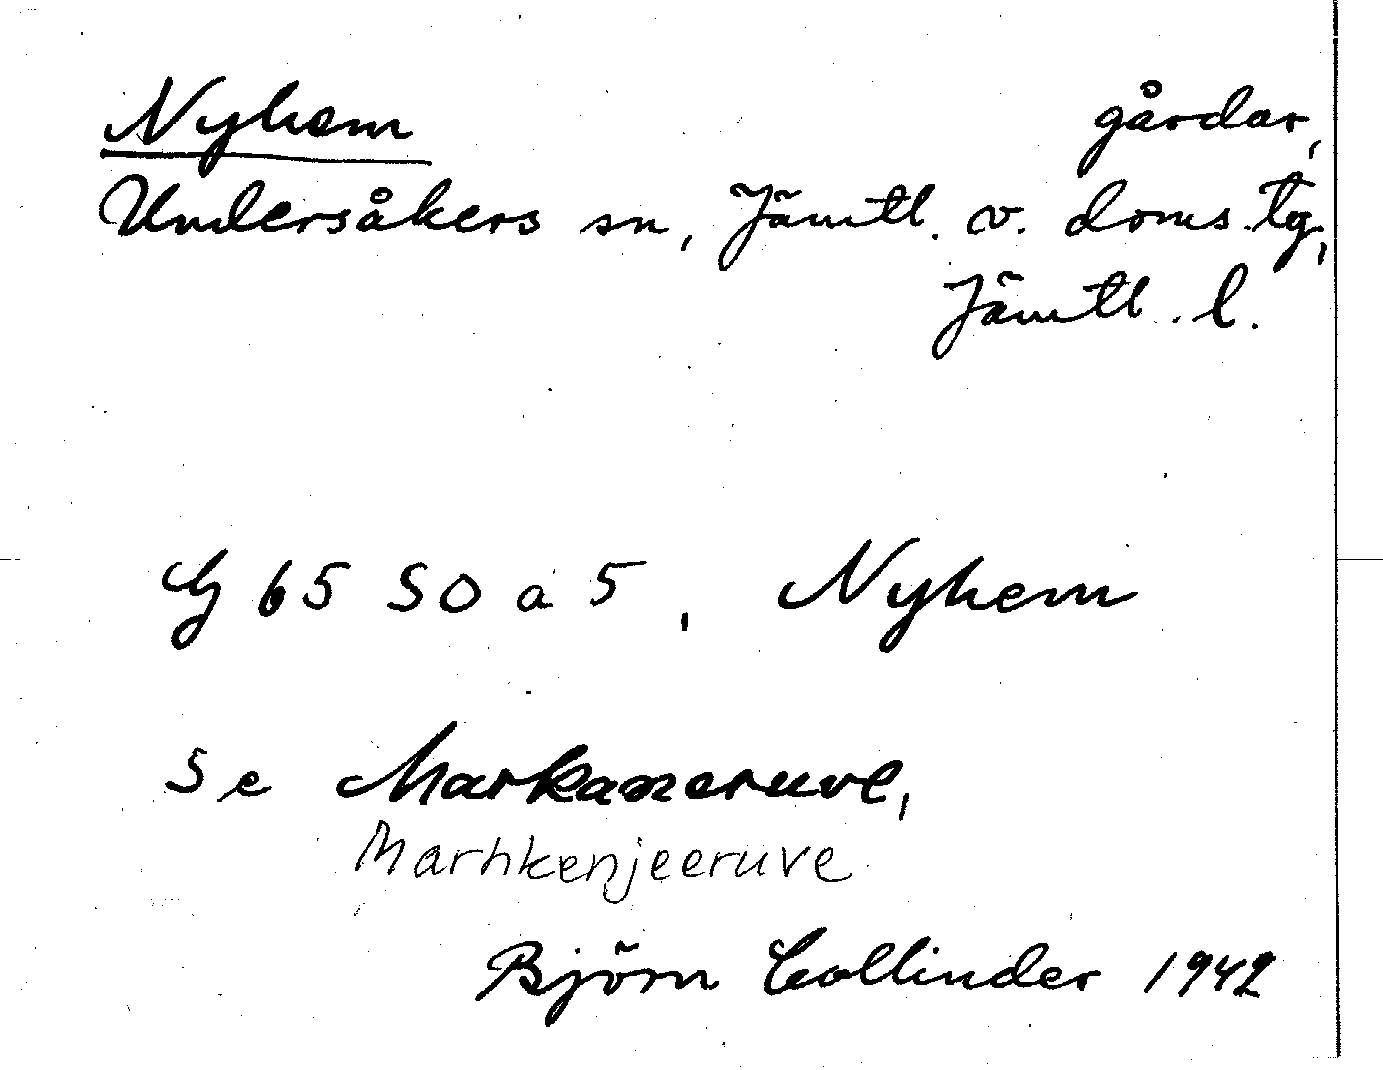 Nyhem gårdar,
Undersåkers sn, Jämtl. v. doms. tg,
Jämtl. l.
G 65 SO a 5, Nyhem
Se
Marhkenjeeruve
Björn Collinder 1942